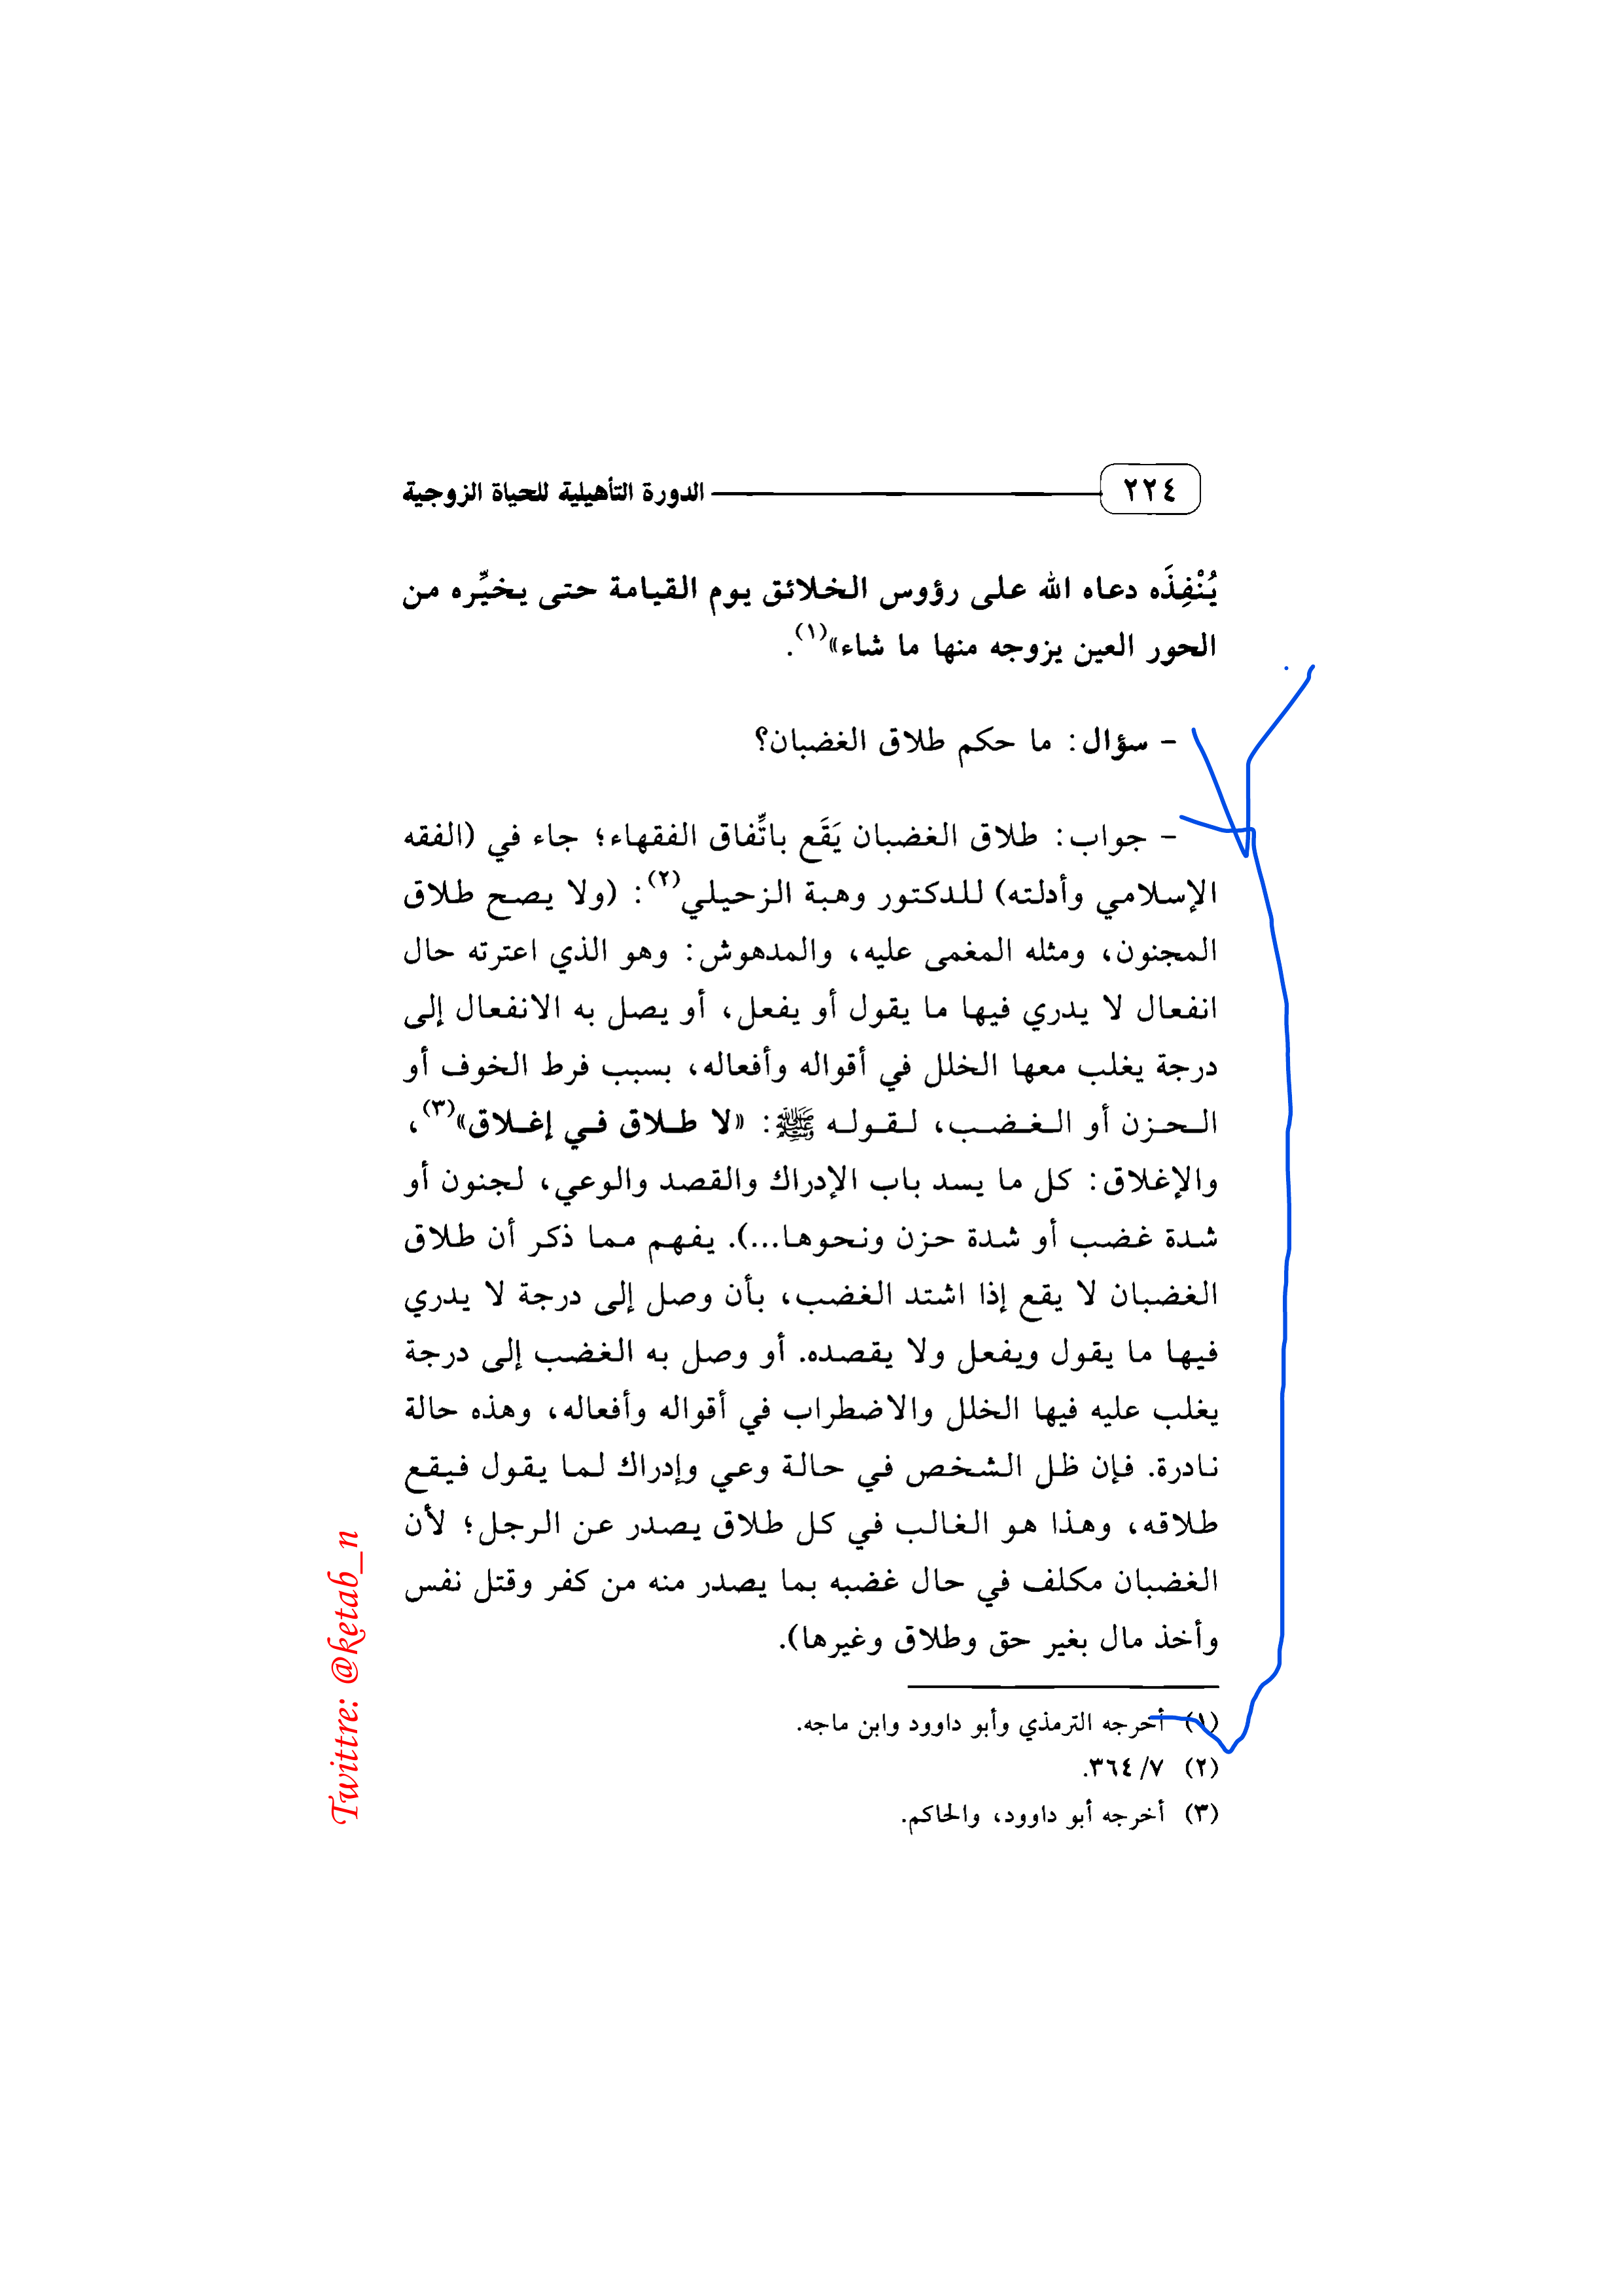 ٢٢٤ الدورة التأهيلية للحياة الزوجية
يُنْفِذَه دعاه الله على رؤوس الخلائق يوم القيامة حتى يخيِّره من
الحور العين يزوجه منها ما شاء»(١).
- سؤال: ما حكم طلاق الغضبان؟
- جواب: طلاق الغضبان يَقَع باتِّفاق الفقهاء؛ جاء في (الفقه
الإسلامي وأدلته) للدكتور وهبة الزحيلي(٢): (ولا يصح طلاق
المجنون، ومثله المغمى عليه، والمدهوش: وهو الذي اعترته حال
انفعال لا يدري فيها ما يقول أو يفعل، أو يصل به الانفعال إلى
درجة يغلب معها الخلل في أقواله وأفعاله، بسبب فرط الخوف أو
الحزن أو الغضب، لقوله ﷺ: «لا طلاق في إغلاق»(٣)،
والإغلاق: كل ما يسد باب الإدراك والقصد والوعي، لجنون أو
شدة غضب أو شدة حزن ونحوها...). يفهم مما ذكر أن طلاق
الغضبان لا يقع إذا اشتد الغضب، بأن وصل إلى درجة لا يدري
فيها ما يقول ويفعل ولا يقصده. أو وصل به الغضب إلى درجة
يغلب عليه فيها الخلل والاضطراب في أقواله وأفعاله، وهذه حالة
نادرة. فإن ظل الشخص في حالة وعي وإدراك لما يقول فيقع
طلاقه، وهذا هو الغالب في كل طلاق يصدر عن الرجل؛ لأن
الغضبان مكلف في حال غضبه بما يصدر منه من كفر وقتل نفس
وأخذ مال بغير حق وطلاق وغيرها).
(١) أخرجه الترمذي وأبو داوود وابن ماجه.
(٢) ٧/ ٣٦٤.
(٣) أخرجه أبو داوود، والحاكم.
Twittre: @ketab_n